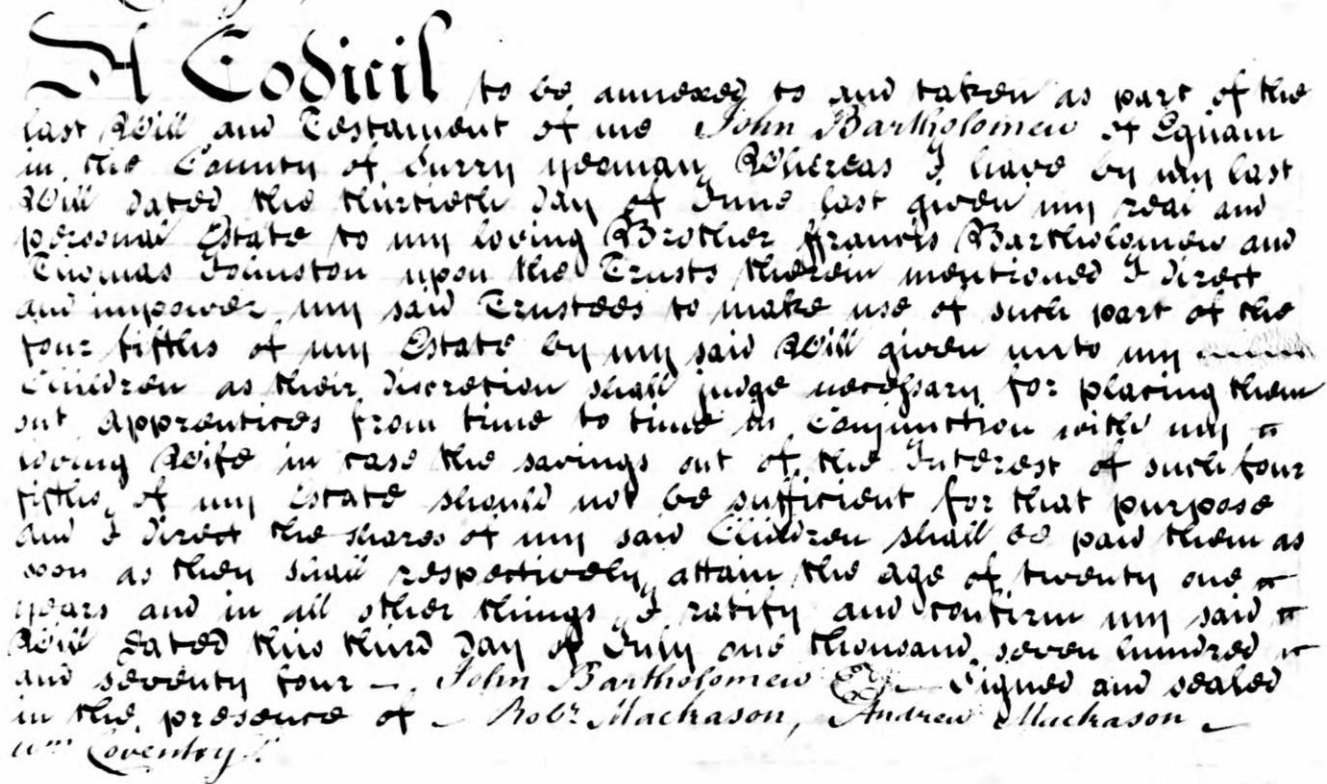 A Codicil to be annexed to and taken as part of the
last Will and Testament of me John Bartholomew of Egham
in the County of Surry yeoman Whereas I have by my last
Will dated the thirtieth day of June last given my real and
personal Estate to my loving Brother ffrancis Bartholomew and
Thomas Johnston upon the Trusts therein mentioned I direct
and impower my said Trustees to make use of such part of the
four fifths of my Estate by my said Will given unto my
Children as their discretion shall judge necessary for placing them
out Apprentices from time to time in Conjunction with my
loving Wife in case the savings out of the Interest of such four
fifths of my Estate should not be sufficient for that purpose
And I direct the shares of my said Children shall be paid them as
soon as they shall respectively attain the age of twenty one
years and in all other things I ratify and confirm my said
Will Dated this third Day of July one thousand seven hundred
and seventy four – John Bartholomew – Signed and sealed
in the presence of – Robt Mackason, Andrew Mackason –
Wm Coventry.